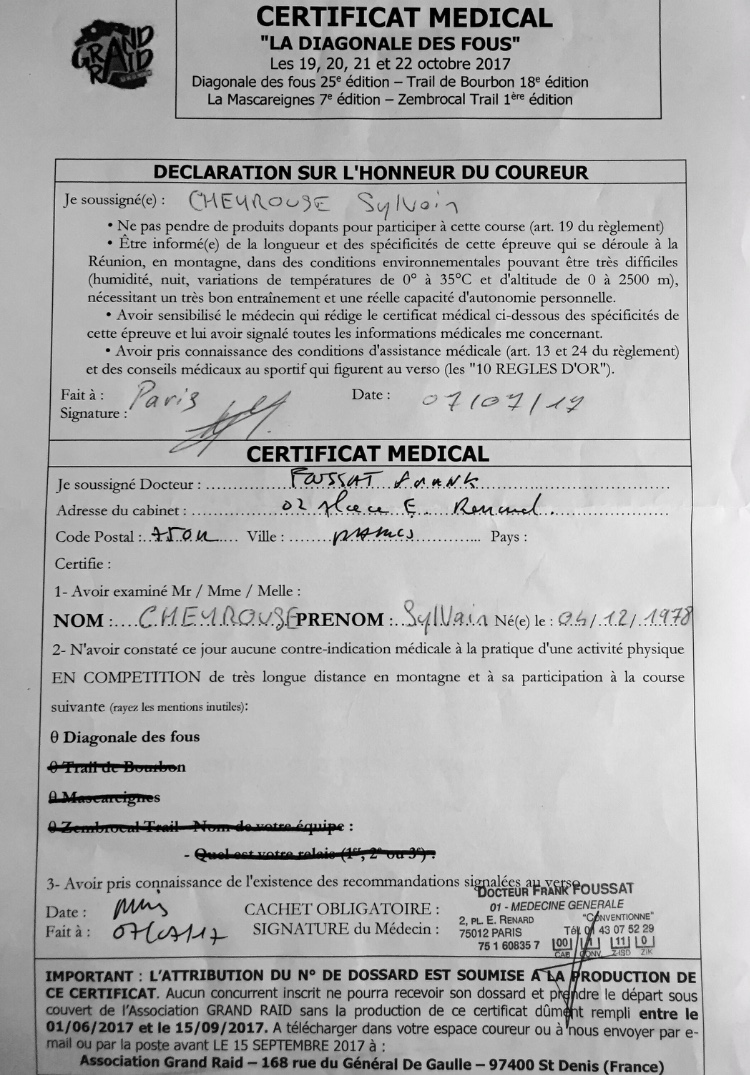 GRAND
RAID
CERTIFICAT MEDICAL
"LA DIAGONALE DES FOUS"
Les 19, 20, 21 et 22 octobre 2017
Diagonale des fous 25e édition – Trail de Bourbon 18e édition
La Mascareignes 7e édition – Zembrocal Trail 1ère édition
DECLARATION SUR L'HONNEUR DU COUREUR
Je soussigné(e) : CHEYROUSE Sylvain
• Ne pas pendre de produits dopants pour participer à cette course (art. 19 du règlement)
• Être informé(e) de la longueur et des spécificités de cette épreuve qui se déroule à la
Réunion, en montagne, dans des conditions environnementales pouvant être très difficiles
(humidité, nuit, variations de températures de 0° à 35°C et d'altitude de 0 à 2500 m),
nécessitant un très bon entraînement et une réelle capacité d'autonomie personnelle.
• Avoir sensibilisé le médecin qui rédige le certificat médical ci-dessous des spécificités de
cette épreuve et lui avoir signalé toutes les informations médicales me concernant.
• Avoir pris connaissance des conditions d'assistance médicale (art. 13 et 24 du règlement)
et des conseils médicaux au sportif qui figurent au verso (les "10 REGLES D'OR").
Fait à : Paris Date : 07/07/17
Signature :
CERTIFICAT MEDICAL
Je soussigné Docteur : FOUSSAT FRANK
Adresse du cabinet : 02 place E. Renard
Code Postal : Ville : Pays :
Certifie :
1- Avoir examiné Mr / Mme / Melle :
NOM : CHEYROUSE PRENOM : Sylvain Né(e) le : 04/12/1978
2- N'avoir constaté ce jour aucune contre-indication médicale à la pratique d'une activité physique
EN COMPETITION de très longue distance en montagne et à sa participation à la course
suivante (rayez les mentions inutiles):
θ Diagonale des fous
θ Trail de Bourbon
θ Mascareignes
θ Zembrocal Trail - Nom de votre équipe :
- Quel est votre relais (1er, 2e ou 3e) :
3- Avoir pris connaissance de l'existence des recommandations signalées au verso
DOCTEUR FRANK FOUSSAT
Date : CACHET OBLIGATOIRE : 01 - MEDECINE GENERALE
"CONVENTIONNE"
Fait à : 07/07/17 SIGNATURE du Médecin : 2, PL. E. RENARD
75012 PARIS Tél. 01 43 07 52 29
75 1 60835 7 00 1 11 0
CAB CONV. Z-ISD ZIK
IMPORTANT : L'ATTRIBUTION DU N° DE DOSSARD EST SOUMISE A LA PRODUCTION DE
CE CERTIFICAT. Aucun concurrent inscrit ne pourra recevoir son dossard et prendre le départ sous
couvert de l'Association GRAND RAID sans la production de ce certificat dûment rempli entre le
01/06/2017 et le 15/09/2017. A télécharger dans votre espace coureur ou à nous envoyer par e-
mail ou par la poste avant LE 15 SEPTEMBRE 2017 à :
Association Grand Raid – 168 rue du Général De Gaulle – 97400 St Denis (France)